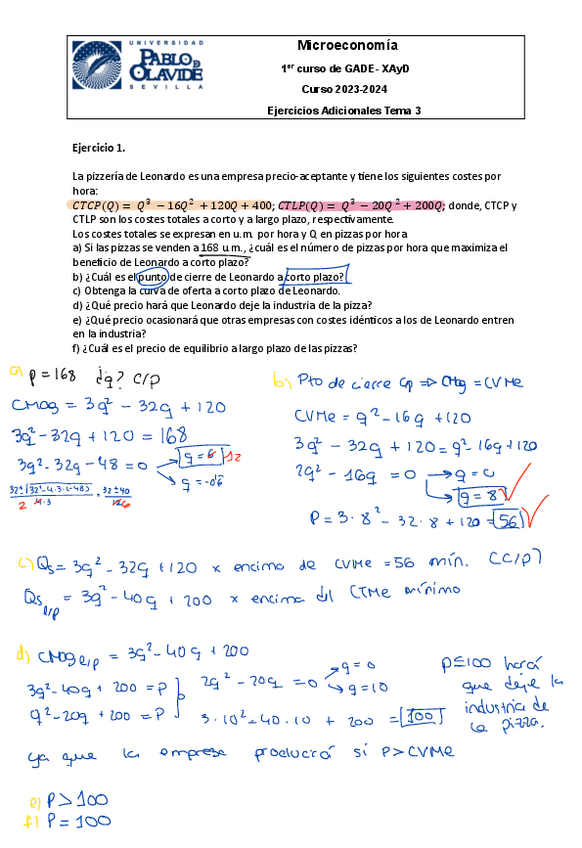 UNIVERSIDAD
PABLO DE
OLAVIDE
SEVILLA
Microeconomía
1er curso de GADE- XAyD
Curso 2023-2024
Ejercicios Adicionales Tema 3
Ejercicio 1.
La pizzería de Leonardo es una empresa precio-aceptante y tiene los siguientes costes por
hora:
CTCP(Q) = Q³ − 16Q² + 120Q + 400; CTLP(Q) = Q³ − 20Q² + 200Q; donde, CTCP y
CTLP son los costes totales a corto y a largo plazo, respectivamente.
Los costes totales se expresan en u.m. por hora y Q en pizzas por hora
a) Si las pizzas se venden a 168 u.m., ¿cuál es el número de pizzas por hora que maximiza el
beneficio de Leonardo a corto plazo?
b) ¿Cuál es el punto de cierre de Leonardo a corto plazo?
c) Obtenga la curva de oferta a corto plazo de Leonardo.
d) ¿Qué precio hará que Leonardo deje la industria de la pizza?
e) ¿Qué precio ocasionará que otras empresas con costes idénticos a los de Leonardo entren
en la industria?
f) ¿Cuál es el precio de equilibrio a largo plazo de las pizzas?
a) p = 168 ¿q? c/p
CMag = 3q² − 32q + 120
3q² − 32q + 120 = 168
3q² − 32q − 48 = 0 → q = 6 12
→ q = −0'6
b) Pto de cierre c/p ⇒ CMag = CVMe
CVMe = q² − 16q + 120
3q² − 32q + 120 = q² − 16q + 120
2q² − 16q = 0 → q = 0
→ q = 8
P = 3·8² − 32·8 + 120 = 56
c) Qs = 3q² − 32q + 120 x encima de CVMe = 56 mín. (c/p)
Qs e/p = 3q² − 40q + 200 x encima del CTMe mínimo
d) CMag e/p = 3q² − 40q + 200
3q² − 40q + 200 = P
q² − 20q + 200 = P
2q² − 20q = 0 → q = 0
→ q = 10
3·10² − 40·10 + 200 = 100
p≤100 hará
que deje la
industria de
la pizza.
ya que la empresa producirá si P > CVMe
e) P > 100
f) P = 100